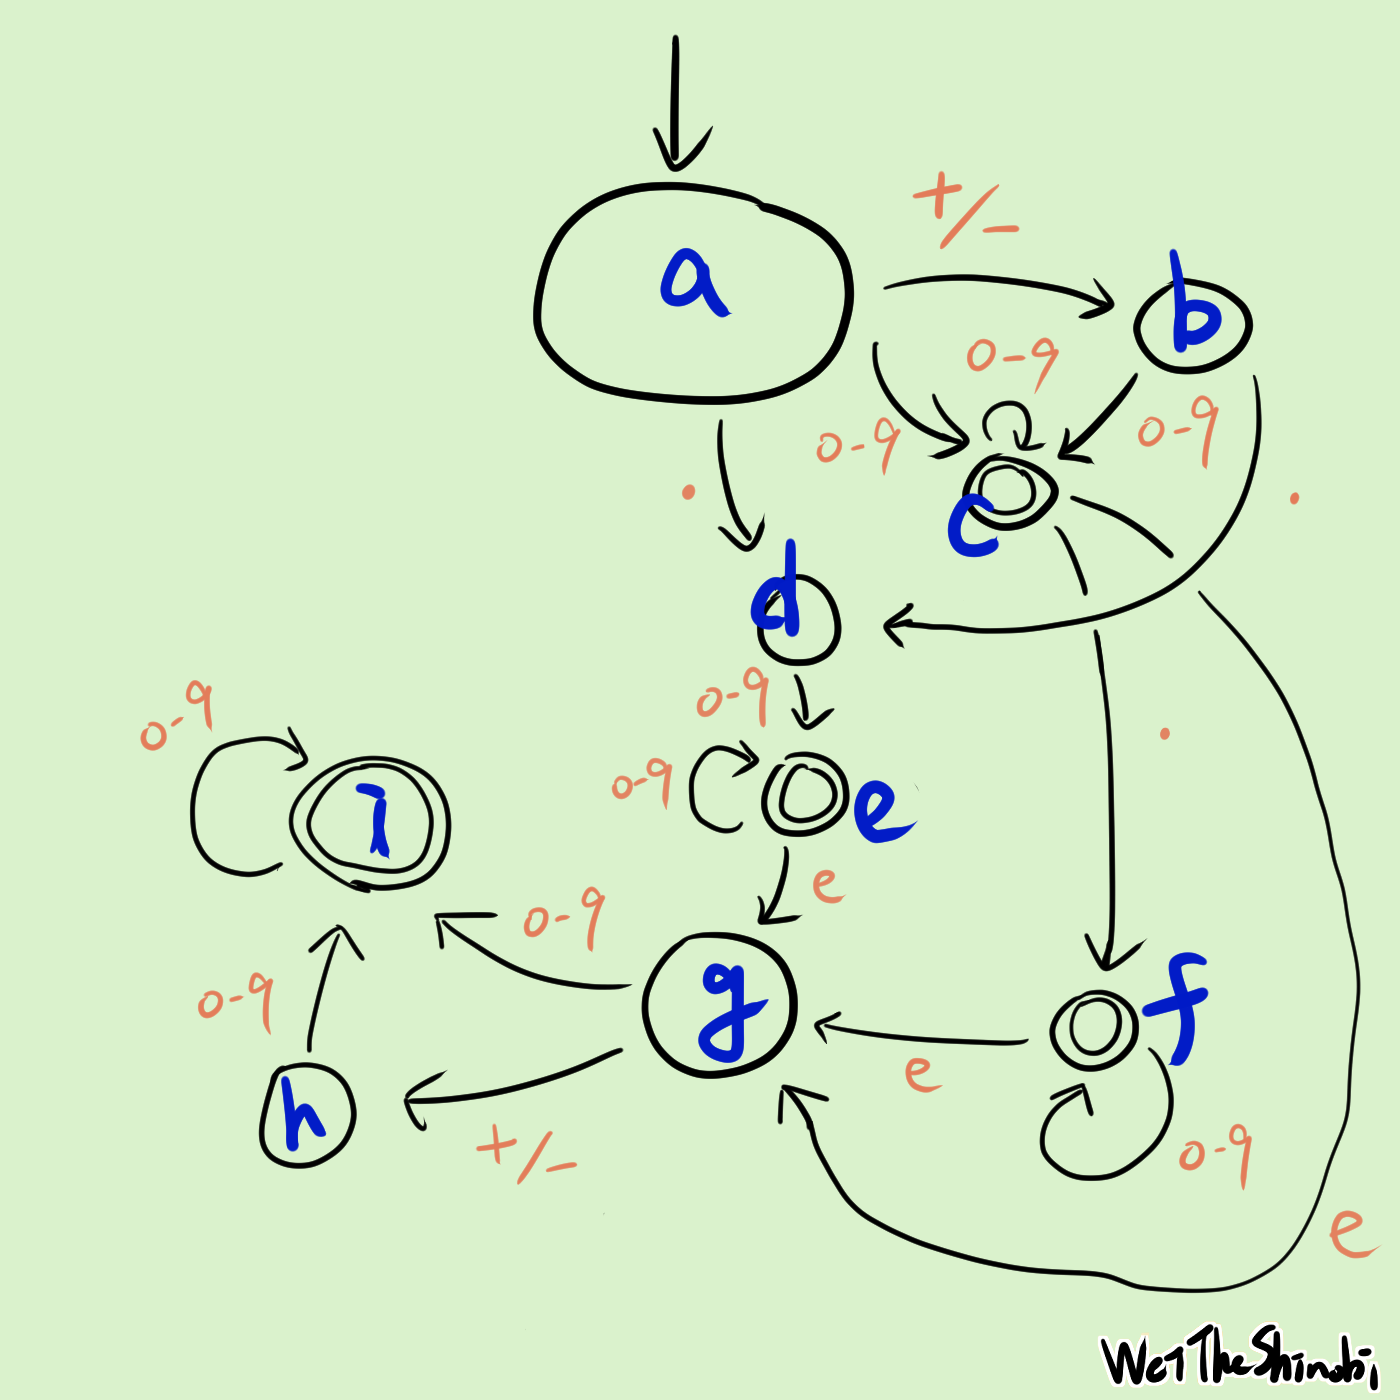 +/-
a
b
0-9
0-9
0-9
c
.
.
d
0-9
.
0-9
i
0-9
e
e
0-9
g
f
0-9
e
h
+/-
0-9
e
WetTheShinobi